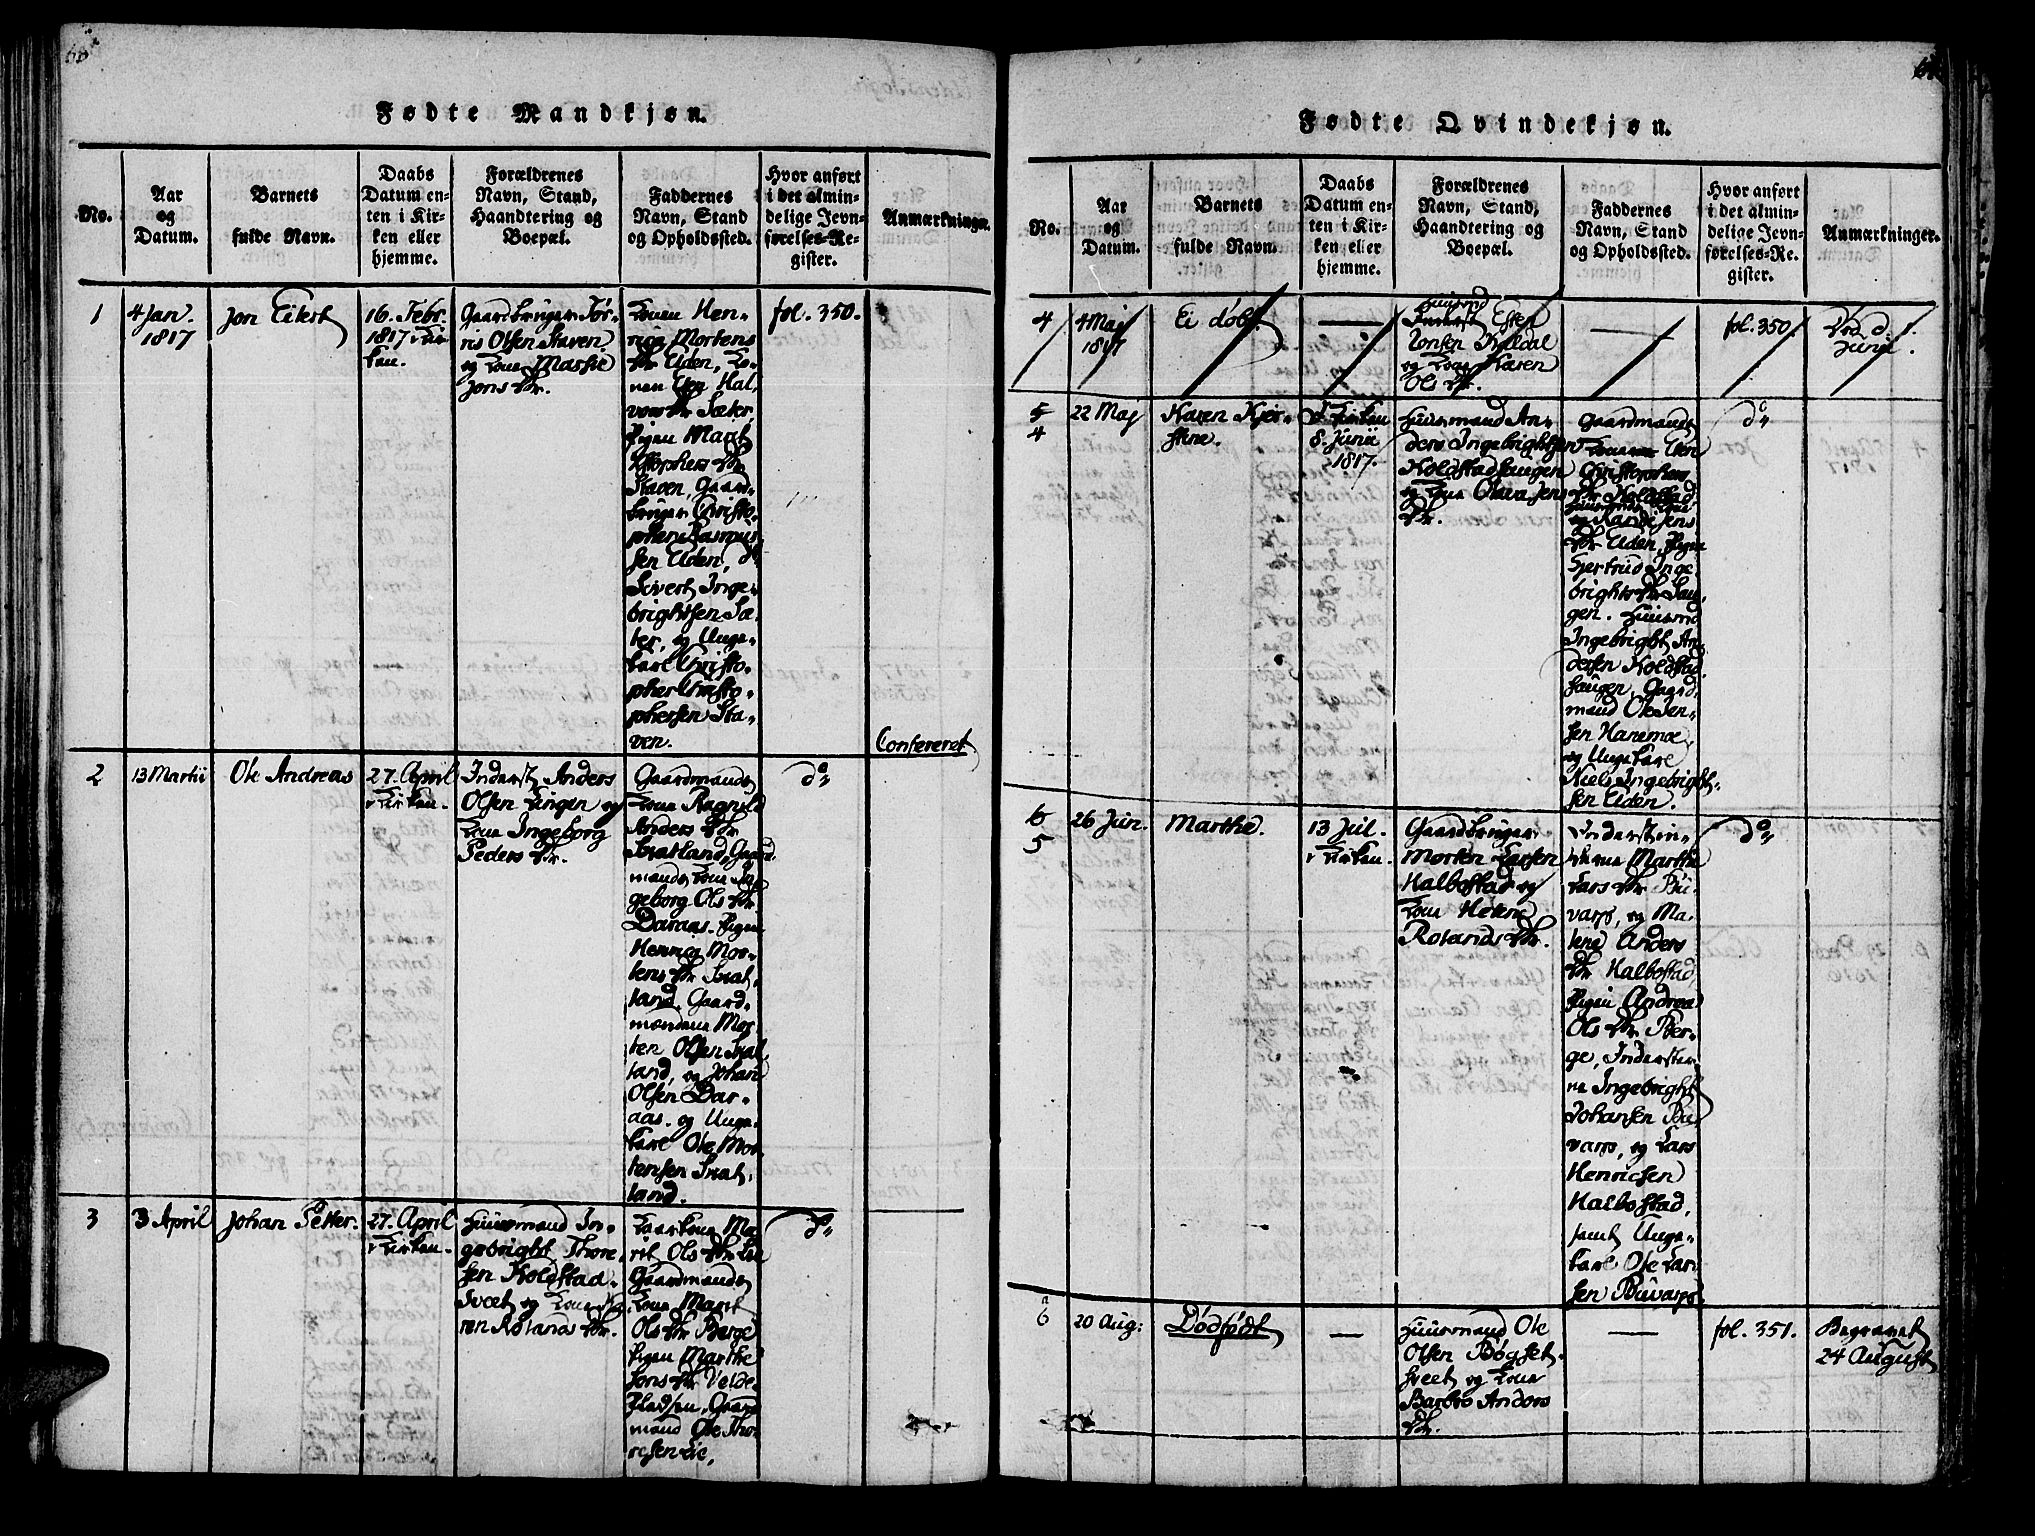 68
Fødte Mandkjøn.
No.
Aar
og
Datum.
Barnets
fulde Navn.
Daabs
Datum en-
ten i Kir-
ken eller
hjemme.
Forældrenes
Navn, Stand,
Haandtering og
Boepæl.
Faddernes
Navn, Stand
og Opholdssted.
Hvor anført
i det almin-
delige Jevn-
førelses-Re-
gister.
Anmærkninger.
1
4 Jan.
1817
Jon Eilert
16. Febr.
1817 i Kir-
ken.
Gaardbruger Tør-
ris Olsen Staven
og Kone Massie
Jons Dtr.
Konen Hen-
rica Mortens
Dtr Elden, Ko-
nen Elen Hal,
vors Dtr Sæter
Pigen Marit
Christophers Dtr
Staven, Gaard-
bruger Christo-
pher Rasmus-
sen Elden, do
Sivert Inge-
brightsen Sæ-
ter, og Unge-
karl Christo-
pher Christo-
phersen Sta-
ven.
fol. 350.
Confereret
2
13 Martii
Ole Andreas
27. April
i Kirken.
Inderst Anders
Olsen Lingen og
Kone Ingeborg
Peders Dtr.
Gaardmands
Kone Ragnild
Anders Dtr
Svatland, Gaard-
mands Kone In-
geborg Ols Dtr
Daraas. Pigen
Henrica Mor-
tens Dtr Svat-
land. Gaard-
mændene Mor-
ten Olsen Svat-
land, og Johan
Olsen Dar-
aas. og Unge-
karl Ole Mor-
tensen Svat-
land.
do
3
3 April
Johan Petter.
27. April
i Kirken.
Huusmand In-
gebright Thore-
sen Koldstad-
Svect og Kone Ka-
ren Rolands Dtr.
Kaarkone Ma-
rit Ols Dtr Lie
Gaardmands
Kone Marit
Ols Dtr Berge
Pigen Marthe
Jons Dtr Velde
Pladsen, Gaard
mand Ole Tho-
resen Lie,
do
Fødte Qvindekjøn.
No.
Aar
og
Datum.
Barnets
fulde Navn.
Daabs
Datum en-
ten i Kir-
ken eller
hjemme.
Forældrenes
Navn, Stand,
Haandtering og
Boepæl.
Faddernes
Navn, Stand
og Opholdssted.
Hvor anført
i det almin-
delige Jevn-
førelses-Re-
gister.
Anmærkninger.
4
4 Maj
1817
Ei døbt.
Huusmd
Inderst Esten
Jonsen Kaldal
og Kone Karen
Ols Dtr.
fol. 350
Død d. 1.
Junii.
5
4
22 Maj
Karen Kjer-
stine.
I Kirken
8. Junii
1817.
Huusmand An-
ders Ingebrightsen
Koldstadhaugen
og Kone Olava Jens
Dtr.
Gaardmands
Kone Elen
Christophers
Dtr Koldstad
Huusmds Kone
og Karen Jens
Dtr Elden, Pigen
Gjertrud Inge-
brights Dtr Hau-
gen. Huusmd
Ingebright An-
dersen Koldstad
haugen, Gaard-
mand Ole Jen-
sen Hanemoe,
og Ungekarl
Niels Ingebright-
sen Elden.
do
6
5
26 Jun.
Marthe.
13 Jul.
i Kirken.
Gaardbruger
Morten Larsen
Halbostad og
Kone Helena
Rolands Dtr.
Inderstin-
derne Marthe
Lars Dtr Bü-
varp, og Ma-
lene Anders
Dtr Halbostad,
Pigen Andrea
Ols Dtr Ber-
ge, Inderster-
ne Ingebright
Johansen Bü-
varp, og Lars
Henricsen
Halbostad,
samt Unge-
karl Ole Lar-
sen Büvarp.
do
6
20 Aug:
Dødfødt
Huusmand Ole
Olsen Bøgset-
svect og Kone
Barbro Anders
Dtr.
fol. 351.
Begravet
24 August